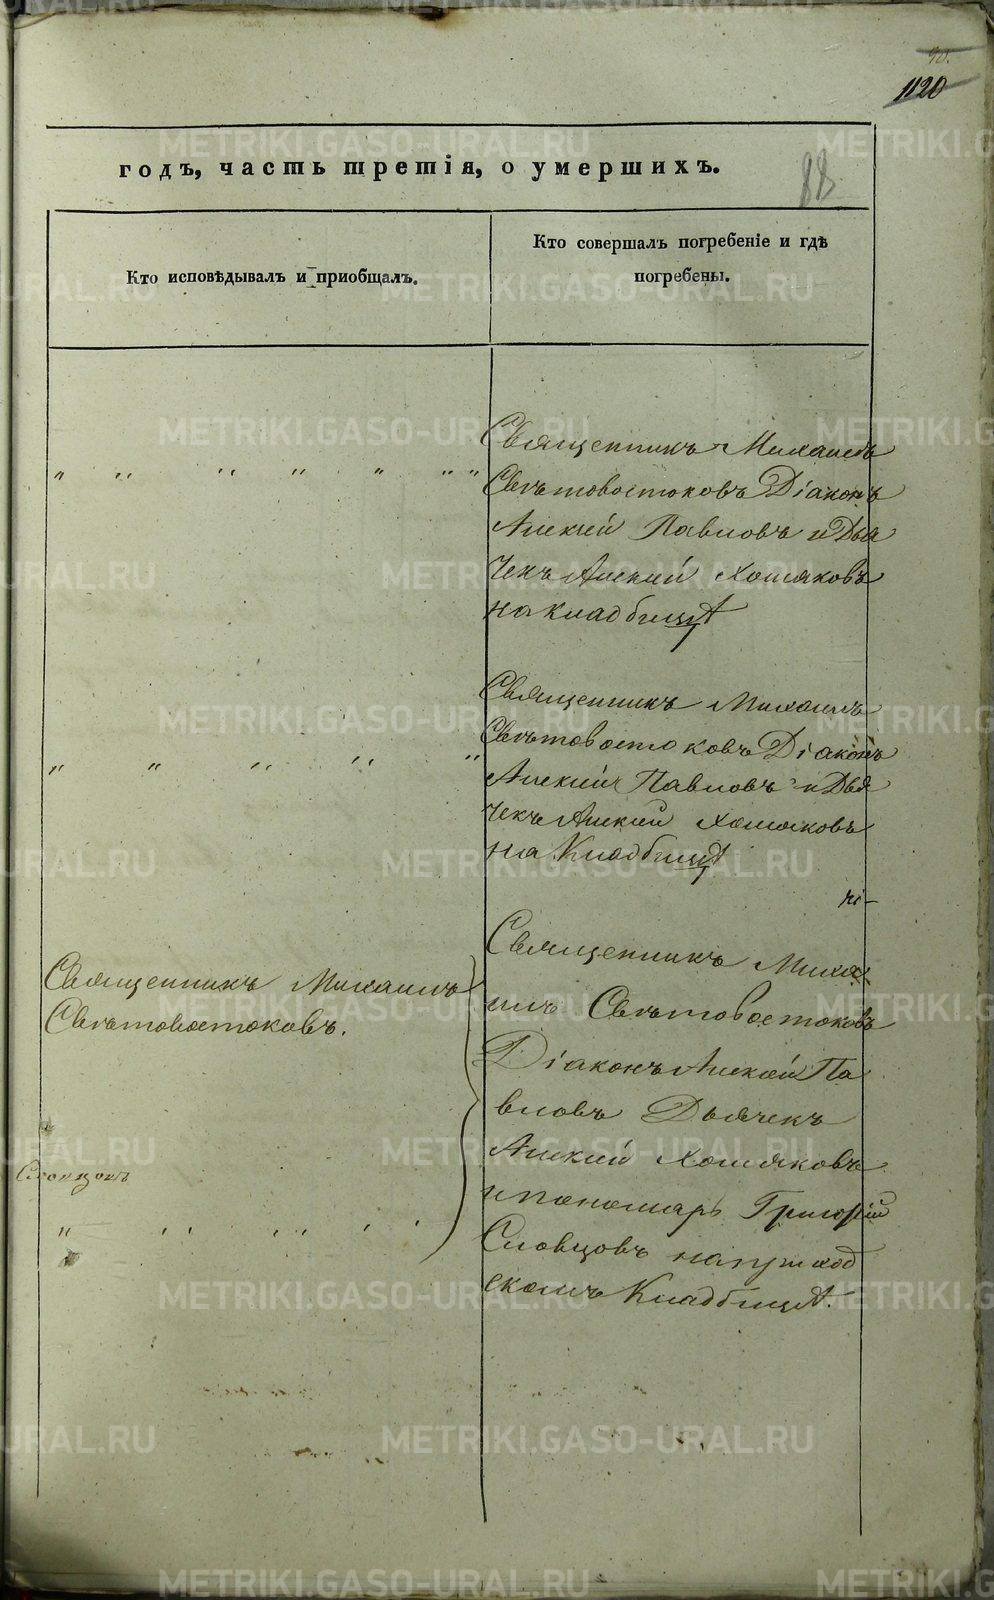 90.
1120
88
годъ, часть третія, о умершихъ.
Кто исповѣдывалъ и пріобщалъ.
Кто совершалъ погребеніе и гдѣ
погребены.
Священникъ Михаилъ
Свѣтовостоковъ Діаконъ
Алексѣй Павловъ и Дья
чекъ Алексѣй Хомяковъ
на кладбищѣ
Священникъ Михаилъ
Свѣтовостоковъ Діаконъ
Алексѣй Павловъ и Дья
чекъ Алексѣй Хомяковъ
на Кладбищѣ
Священникъ Михаилъ
Свѣтовостоковъ.
Священникъ Миха
илъ Свѣтовостоковъ
Діаконъ Алексѣй Па
вловъ Дьячекъ
Алексѣй Хомяковъ
и пономарь Григорій
Словцовъ на приход
скомъ Кладбищѣ.
METRIKI.GASO-URAL.RU